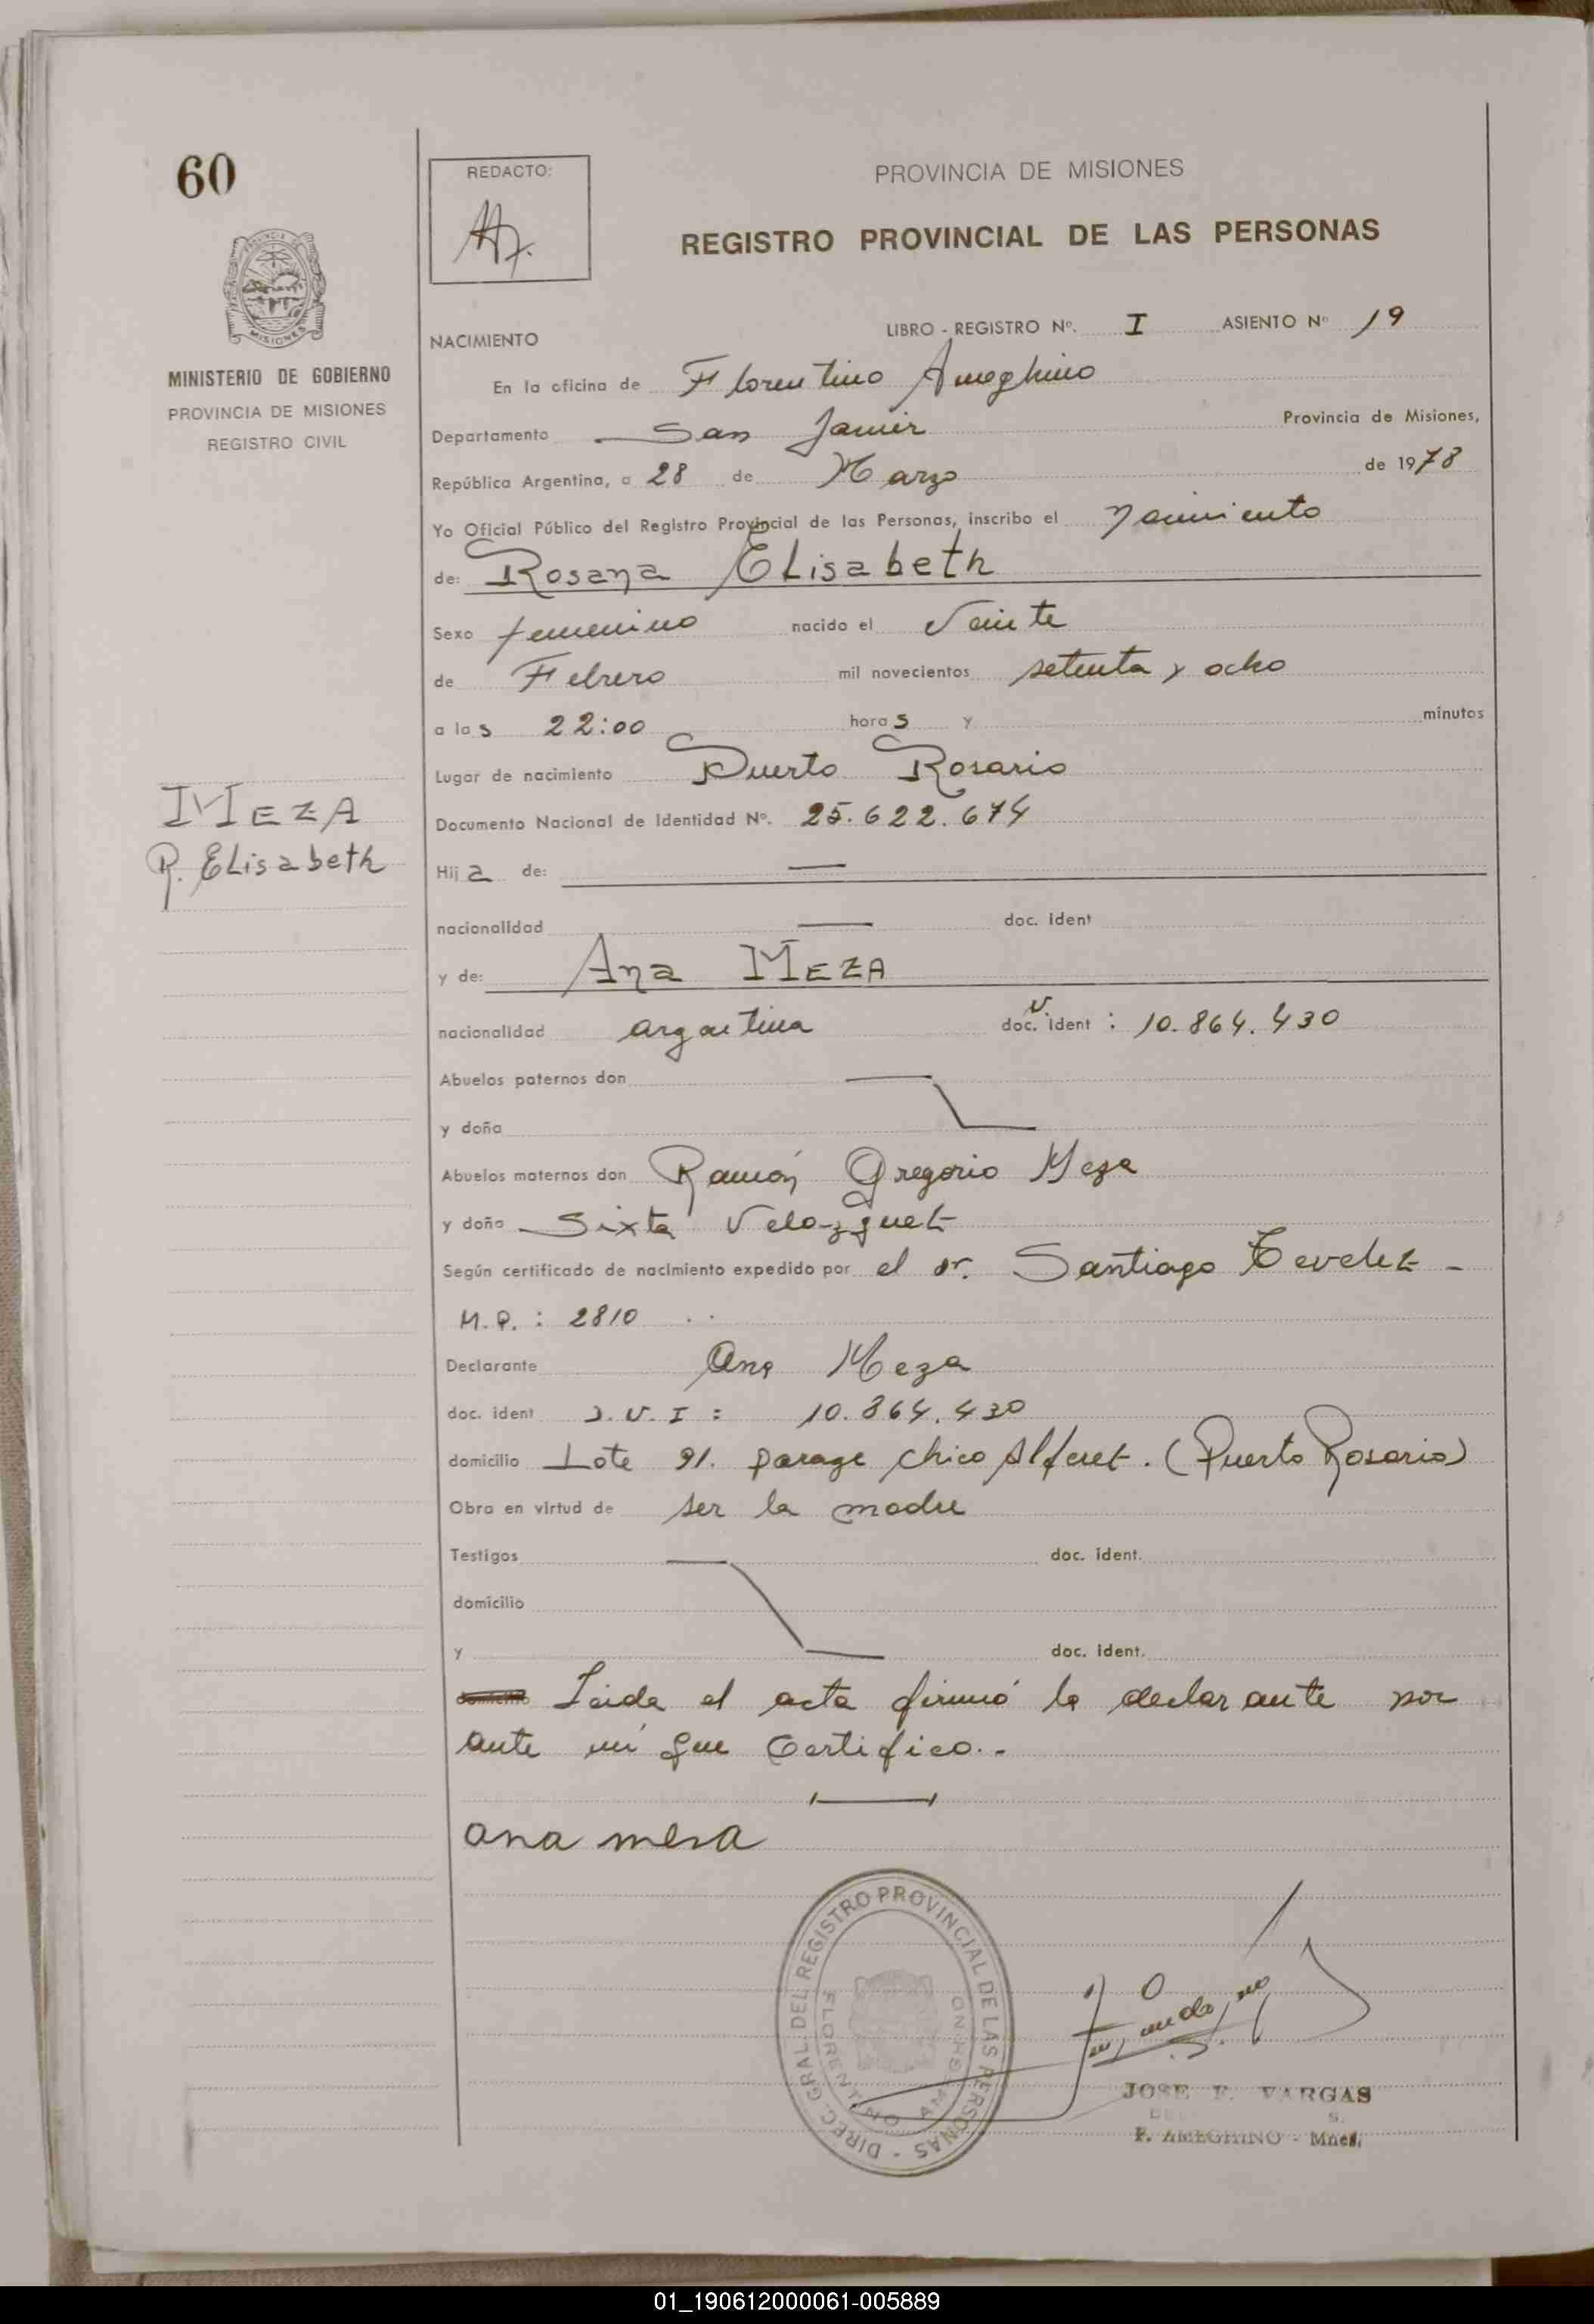 60
REDACTO:
PROVINCIA DE MISIONES
REGISTRO PROVINCIAL DE LAS PERSONAS
MINISTERIO DE GOBIERNO
PROVINCIA DE MISIONES
REGISTRO CIVIL
NACIMIENTO LIBRO - REGISTRO Nº. I ASIENTO Nº 19
En la oficina de Florentino Ameghino
Departamento San Javier Provincia de Misiones,
República Argentina, a 28 de Marzo de 1978
Yo Oficial Público del Registro Provincial de las Personas, inscribo el nacimiento
de: Rosana ELisabeth
Sexo femenino nacido el Veinte
de Febrero mil novecientos setenta y ocho
a las 22:00 horas y minutos
Lugar de nacimiento Puerto Rosario
MEZA
R. ELisabeth
Documento Nacional de Identidad Nº. 25.622.674
Hija de: —
nacionalidad — doc. ident
y de: Ana MEZA
nacionalidad argentina doc. ident : 10.864.430
Abuelos paternos don —
y doña —
Abuelos maternos don Ramón Gregorio Meza
y doña Sixta Velazquez
Según certificado de nacimiento expedido por el dr. Santiago -
M.P. : 2810
Declarante Ana Meza
doc. ident D.N.I : 10.864.430
domicilio Lote 91. parage chico Alferez. (Puerto Rosario)
Obra en virtud de ser la madre
Testigos doc. ident.
domicilio
y doc. ident.
Leida el acta firmó la declarante por
ante mí que certifico.-
ana mesa
DIREC. GRAL. DEL REGISTRO PROVINCIAL DE LAS PERSONAS -
FLORENTINO AMEGHINO
JOSE F. VARGAS
F. AMEGHINO - Mnes.
01_190612000061-005889